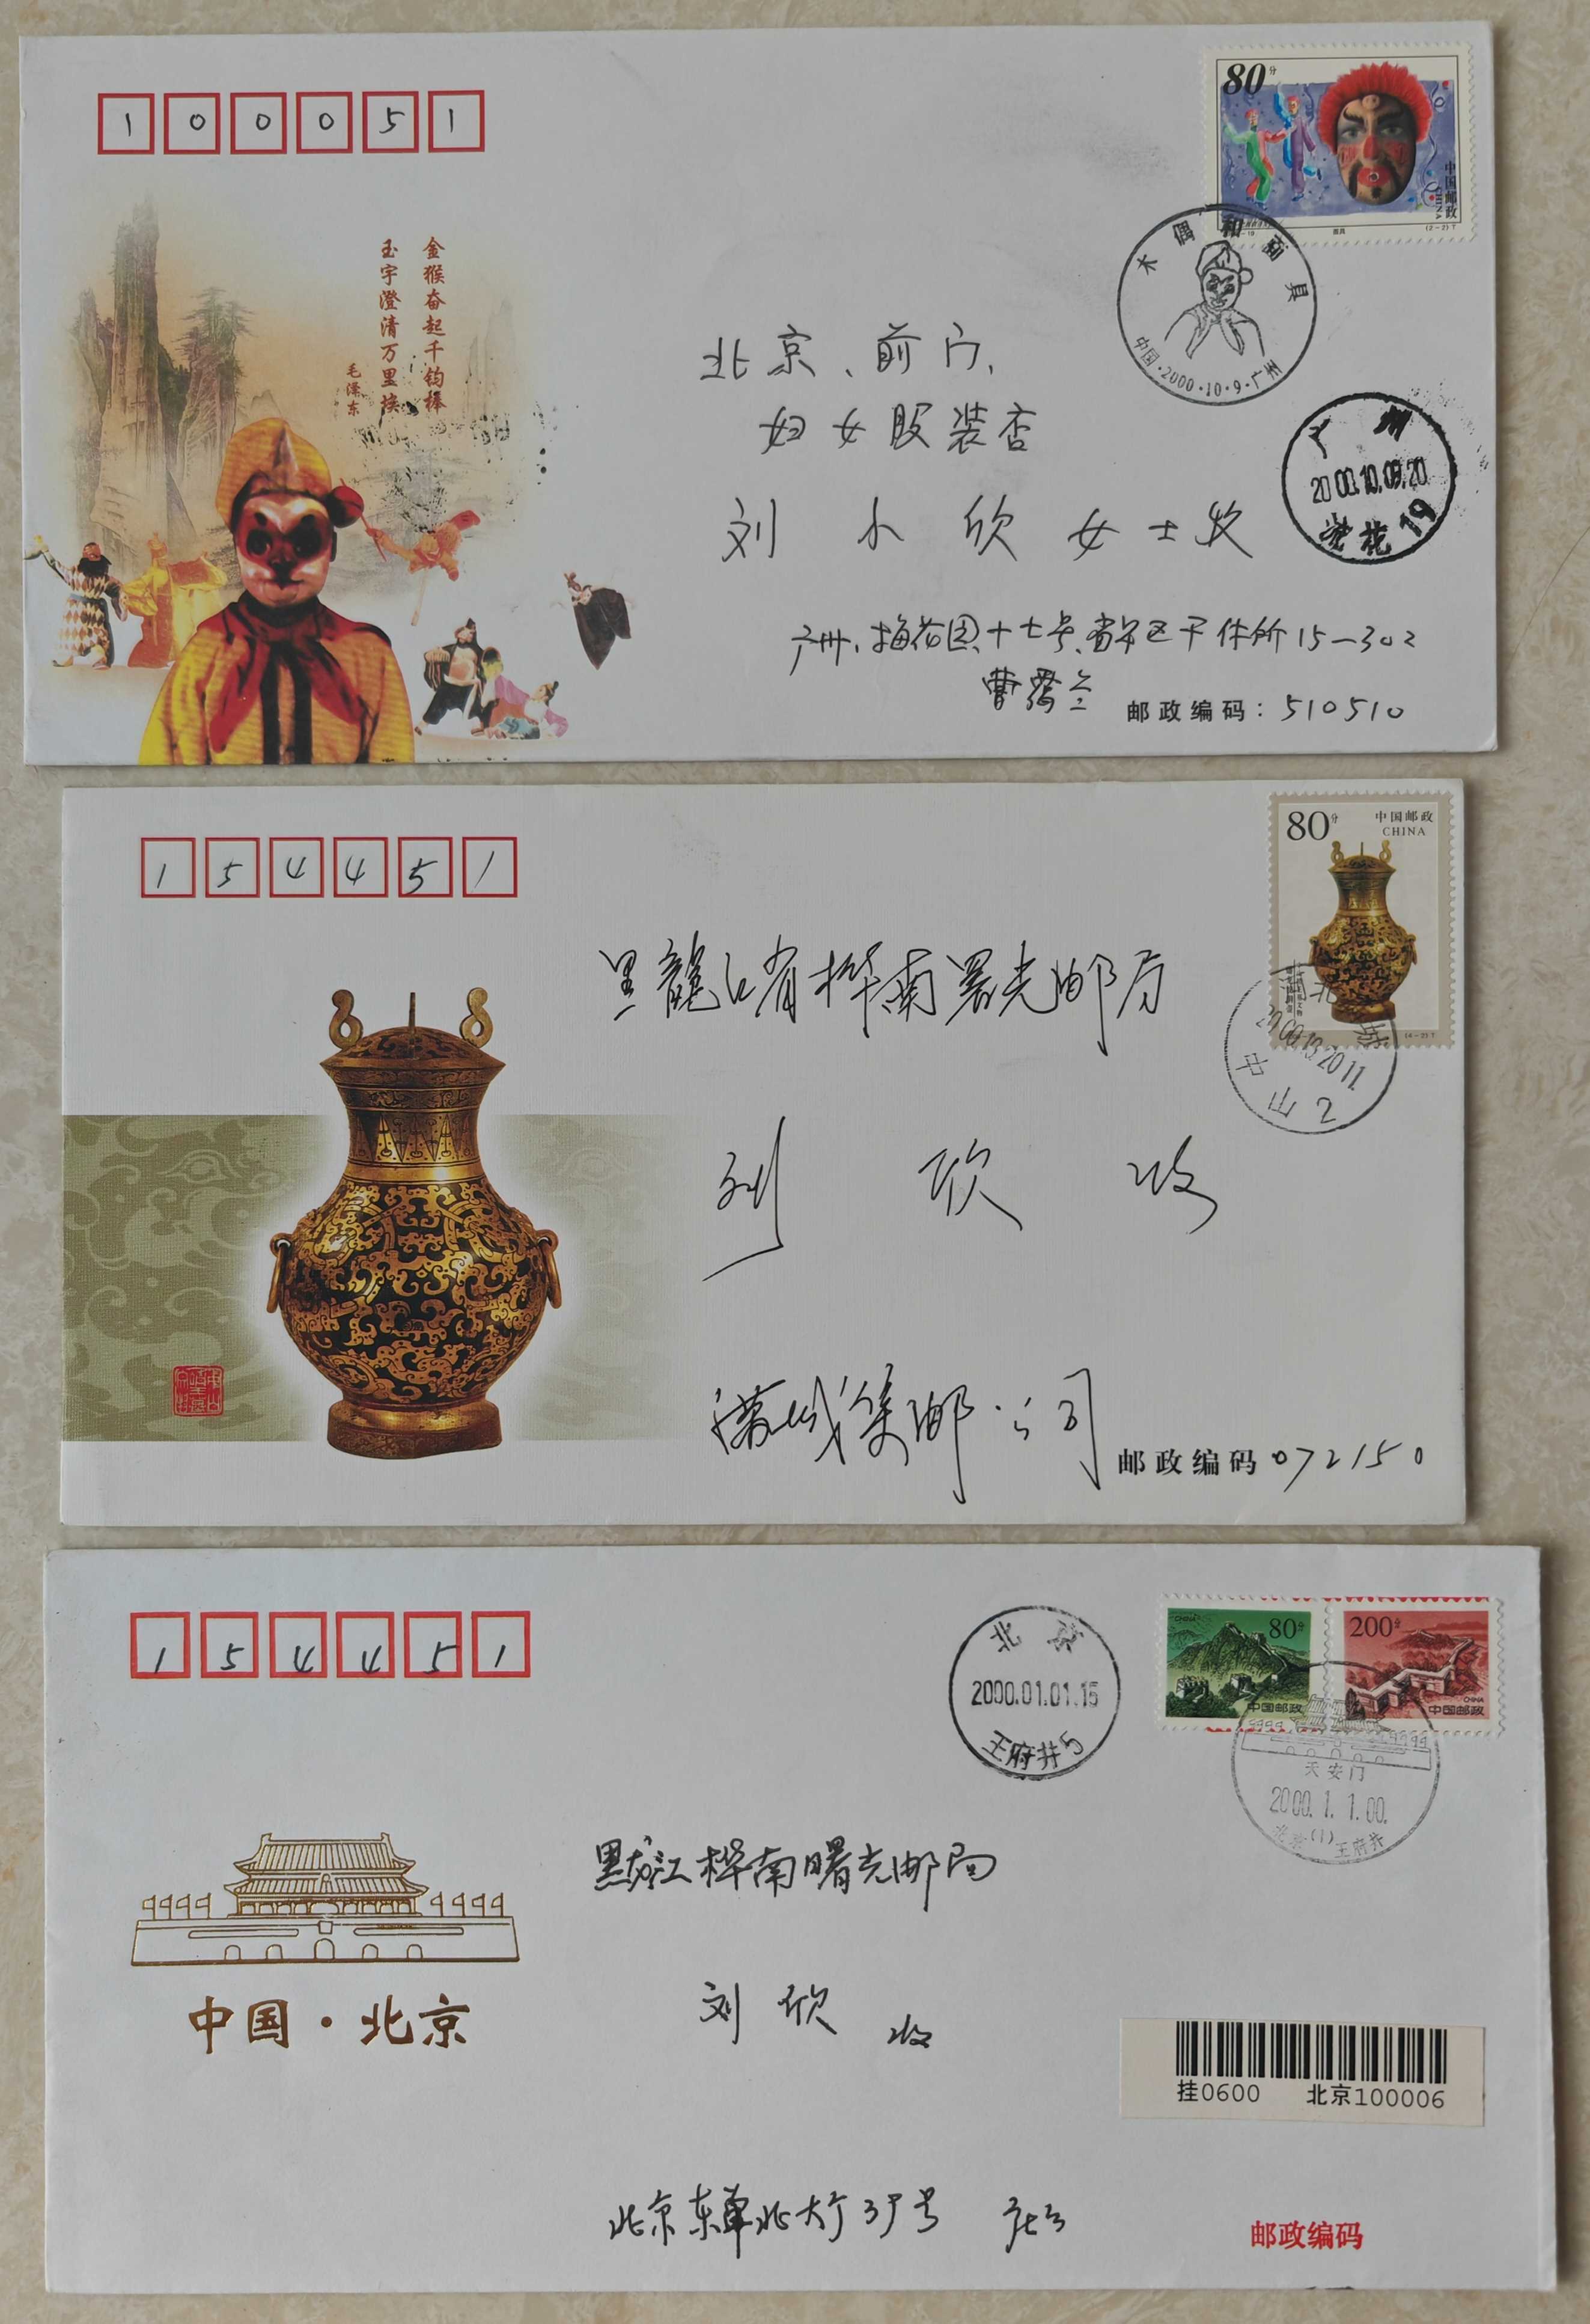 100051
80分
中国邮政
CHINA
(2-2)T
金猴奋起千钧棒
玉宇澄清万里埃
毛泽东
木偶和面具
中国·2000·10·9·广州
北京、前门、
妇女服装店
刘小欣女士收
广州
2000.10.09.20
19
广州,梅花园十七号
15-302
邮政编码:510510
154451
80分
中国邮政
CHINA
(4-2)T
黑龍江省桦南曙光邮局
河北
中山2
刘欣收
满城集邮公司
邮政编码072150
154451
北京
2000.01.01.15
王府井5
CHINA
80分
中国邮政
200分
CHINA
中国邮政
天安门
2000.1.1.00.
北京(1)王府井
黑龙江桦南曙光邮局
中国·北京
刘欣收
挂0600 北京100006
北京东单北大街
邮政编码